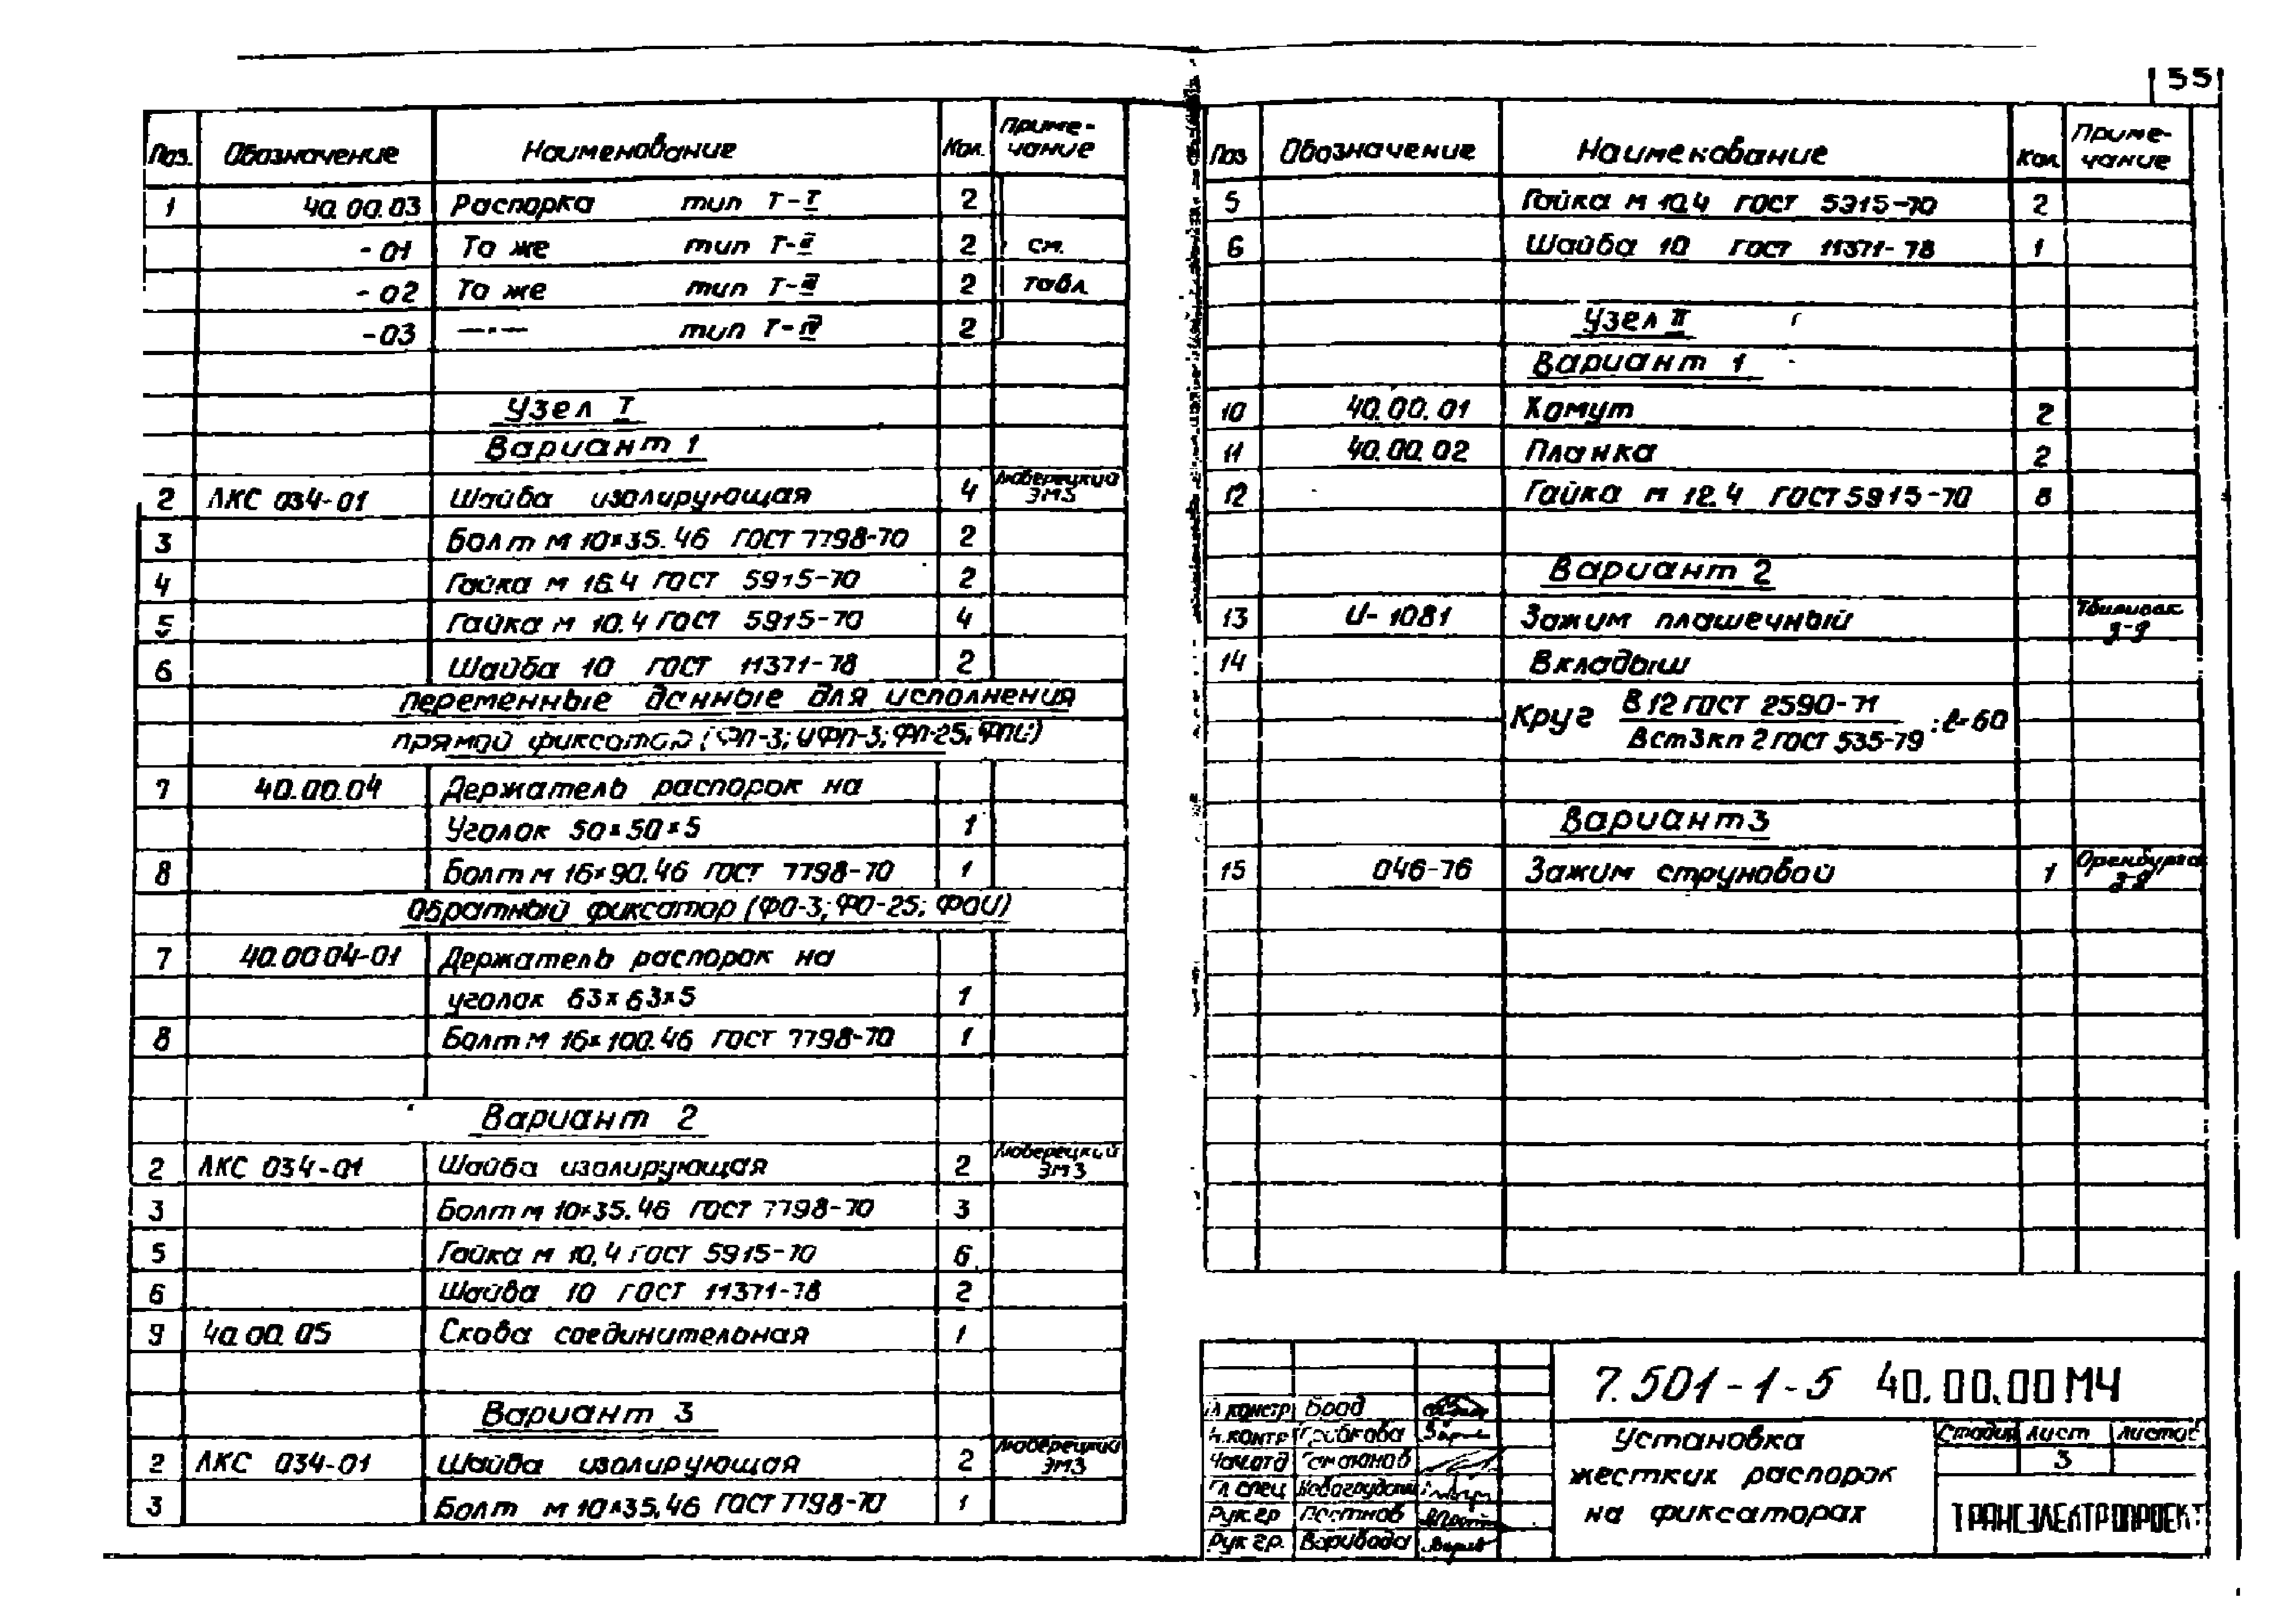 55
Поз. Обозначение Наименование Кол. Приме-
чание
1 40.00.03 Распорка тип Т-I 2
-01 То же тип Т-II 2 см.
-02 То же тип Т-III 2 табл
-03 —·— тип Т-IV 2
Узел I
Вариант 1
2 ЛКС 034-01 Шайба изолирующая 4 Люберецкий
ЭМЗ
3 Болт М 10×35.46 ГОСТ 7798-70 2
4 Гайка М 16.4 ГОСТ 5915-70 2
5 Гайка М 10.4 ГОСТ 5915-70 4
6 Шайба 10 ГОСТ 11371-78 2
Переменные данные для исполнения
прямой фиксатор (ФП-3; УФП-3; ФП-25; ФПИ)
7 40.00.04 Держатель распорок на
Уголок 50×50×5 1
8 Болт М 16×90.46 ГОСТ 7798-70 1
Обратный фиксатор (ФО-3; ФО-25; ФОИ)
7 40.00 04-01 Держатель распорок на
уголок 63×63×5 1
8 Болт М 16×100.46 ГОСТ 7798-70 1
Вариант 2
2 ЛКС 034-01 Шайба изолирующая 2 Люберецкий
ЭМЗ
3 Болт М 10×35.46 ГОСТ 7798-70 3
5 Гайка М 10,4 ГОСТ 5915-70 6
6 Шайба 10 ГОСТ 11371-78 2
9 40.00.05 Скоба соединительная 1
Вариант 3
2 ЛКС 034-01 Шайба изолирующая 2 Люберецкий
ЭМЗ
3 Болт М 10×35,46 ГОСТ 7798-70 1
Поз Обозначение Наименование Кол. Приме-
чание
5 Гайка М 10.4 ГОСТ 5915-70 2
6 Шайба 10 ГОСТ 11371-78 1
Узел II
Вариант 1
10 40.00.01 Хомут 2
11 40.00.02 Планка 2
12 Гайка М 12.4 ГОСТ 5915-70 8
Вариант 2
13 И-1081 Зажим плашечный Тбилисск
з-д
14 Вкладыш
Круг В12 ГОСТ 2590-71
ВСт3кп2 ГОСТ 535-79 :ℓ-60
Вариант 3
15 046-76 Зажим струновой 1 Оренбургс
з-д
7.501-1-5 40.00.00 МЧ
Гл констр Брод
Н.контр
Нач.отд
Гл спец
Рук гр Постнов
Рук гр.
Установка
жестких распорок
на фиксаторах
Стадия Лист Листов
3
ТРАНСЭЛЕКТРОПРОЕКТ